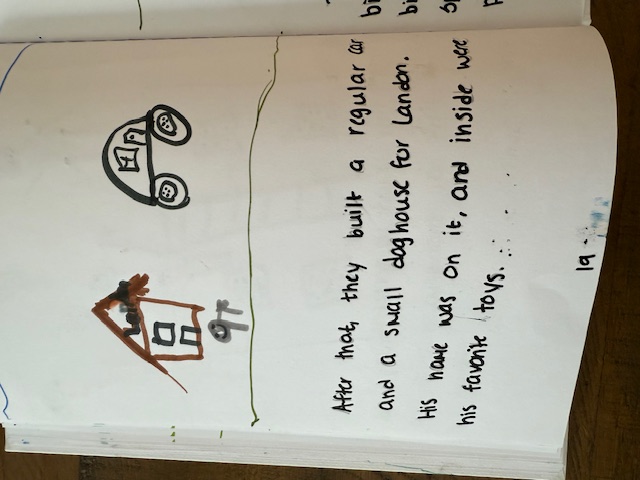 After that, they built a regular car
and a small doghouse for Landon.
His name was on it, and inside were
his favorite toys....
19